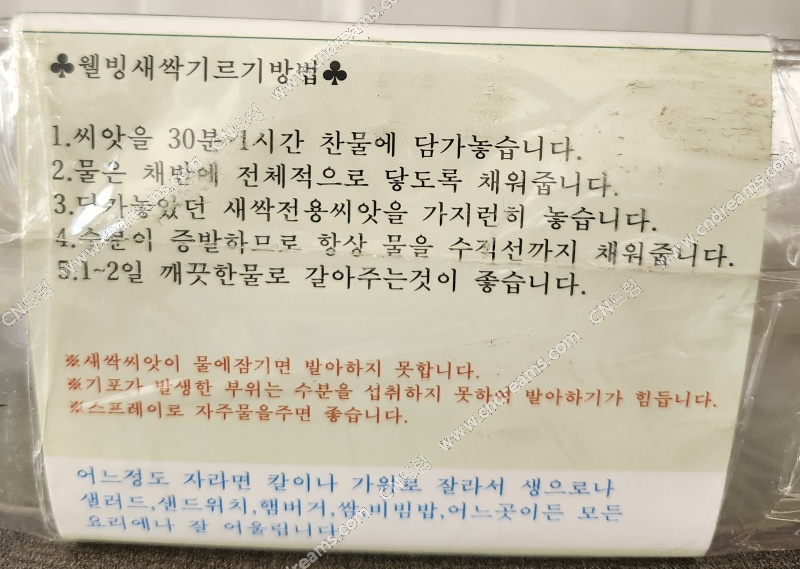 ♣웰빙새싹기르기방법♣
1.씨앗을 30분~1시간 찬물에 담가놓습니다.
2.물은 채반에 전체적으로 닿도록 채워줍니다.
3.담가놓았던 새싹전용씨앗을 가지런히 놓습니다.
4.수분이 증발하므로 항상 물을 수직선까지 채워줍니다.
5.1~2일 깨끗한물로 갈아주는것이 좋습니다.
※새싹씨앗이 물에잠기면 발아하지 못합니다.
※기포가 발생한 부위는 수분을 섭취하지 못하여 발아하기가 힘듭니다.
※스프레이로 자주물을주면 좋습니다.
어느정도 자라면 칼이나 가위로 잘라서 생으로나
샐러드,샌드위치,햄버거,쌈,비빔밥,어느곳이든 모든
요리에나 잘 어울립니다
CN드림 www.cndreams.com